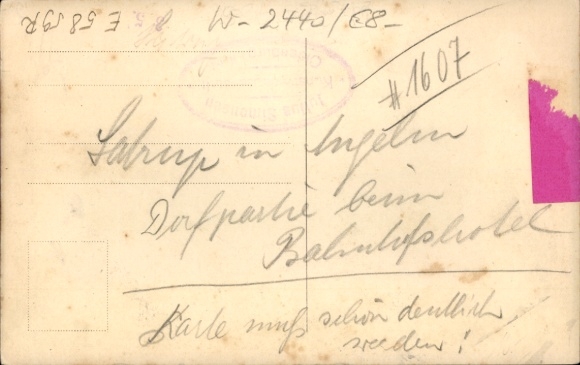 W- 2440/E8-
E 58 59R
#1607
Satrup in Angeln
Dorfpartie beim
Bahnhofshotel
Karte muß schön deutlich
werden!